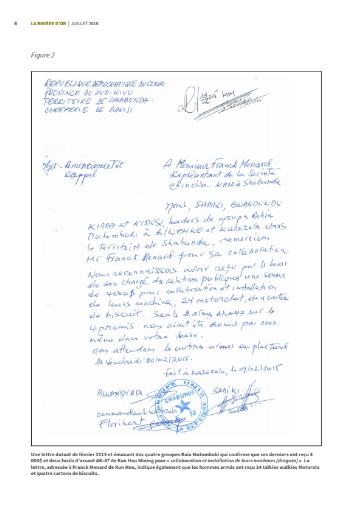 8 LA RIVIÈRE D'OR | JUILLET 2016
Figure 2
REPUBLIQUE DEMOCRATIQUE DU CONGO
PROVINCE DU SUD-KIVU
TERRITOIRE DE SHABUNDA.
CHEFFERIE DE BAKISI
Objet: Remerciement et
Rappel
A Monsieur Franck Menard
Représentant de la Société
chinoise KHM à Shabunda
Nous, SAMIKI, BWANDUNDU
KIABA et KIDUSI, leaders de groupe Raïa
Mutomboki à et Katozola dans
le territoire de Shabunda, remercions
Mr Franck Menard pour sa collaboration.
Nous reconnaissons avoir reçu par le biais
de son chargé de relation publique une somme
de 4000$ pour collaboration et installation
de leurs machine, 24 motorolat, et 4 carton
de biscuit. Seuls 2 armes AK-47 sur les
4 promis nous avait été remis par vous
même dans votre base.
nous attendons les autres armes au plus tard
le Vendredi 20/02/2015.
Fait à Kazozola, le 09/02/2015
SAMIKI
SHABUNDA
commandant
Une lettre datant de février 2015 et émanant des quatre groupes Raïa Mutomboki qui confirme que ces derniers ont reçu 4
000$ et deux fusils d'assaut AK-47 de Kun Hou Mining pour « collaboration et installation de leurs machines [dragues] ». La
lettre, adressée à Franck Menard de Kun Hou, indique également que les hommes armés ont reçu 24 talkies walkies Motorola
et quatre cartons de biscuits.